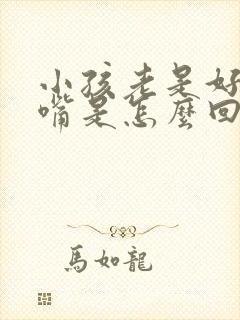 小孩老是好
嘴是怎麼回
馬如龍